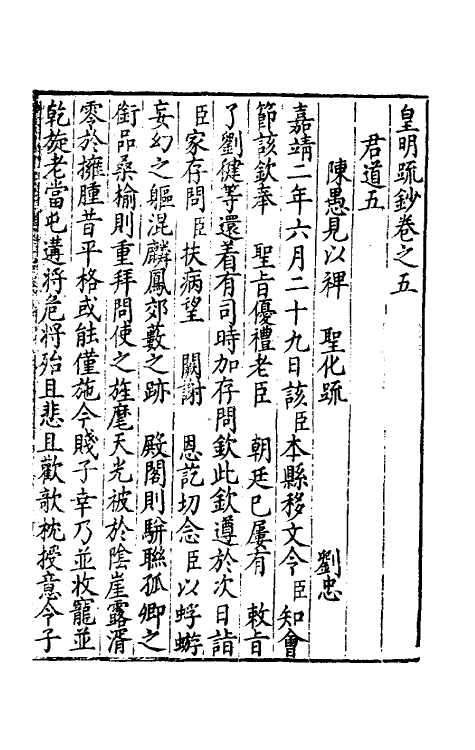 皇明疏鈔卷之五
君道五
陳愚見以裨　聖化疏　劉忠
嘉靖二年六月二十九日該臣本縣移文令臣知會
節該欽奉　聖旨優禮老臣　朝廷已屢有　敕旨
了劉健等還着有司時加存問欽此欽遵於次日詣
臣家存問臣扶病望　闕謝　恩訖切念臣以蜉蝣
妄幻之軀混麟鳳郊藪之跡　殿閣則駢聯孤卿之
銜品桑榆則重拜問使之旌麾天光被於陰崖露湑
零於擁腫昔平格或能僅施今賤子幸乃並收寵並
乾旋老當屯邅將危將殆且悲且歡歌枕授意令子